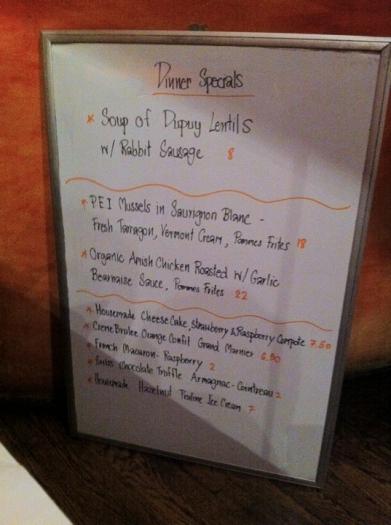 Dinner Specials
* Soup of Dupuy Lentils
w/ Rabbit Sausage 8
* PEI Mussels in Sauvignon Blanc -
Fresh Tarragon, Vermont Cream, Pommes Frites 18
* Organic Amish Chicken Roasted w/ Garlic
Bearnaise Sauce, Pommes Frites 22
* Housemade Cheese Cake, Strawberry & Raspberry Compote 7.50
* Creme Brulee Orange Confit Grand Marnier 6.50
* French Macaron - Raspberry 2
* Swiss Chocolate Truffle Armagnac - Cointreau 2
* Housemade Hazelnut Praline Ice Cream 7